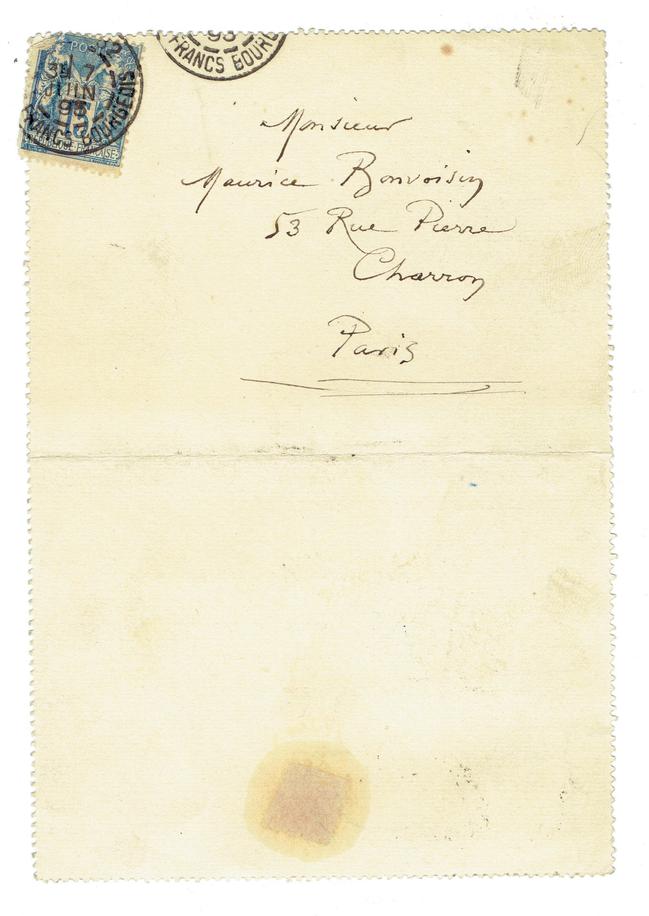 3E 7
JUIN
93
FRANCS BOURGEOIS
15
REPUBLIQUE FRANCAISE
93
FRANCS BOURG
Monsieur
Maurice Bonvoisin
53 Rue Pierre
Charron
Paris